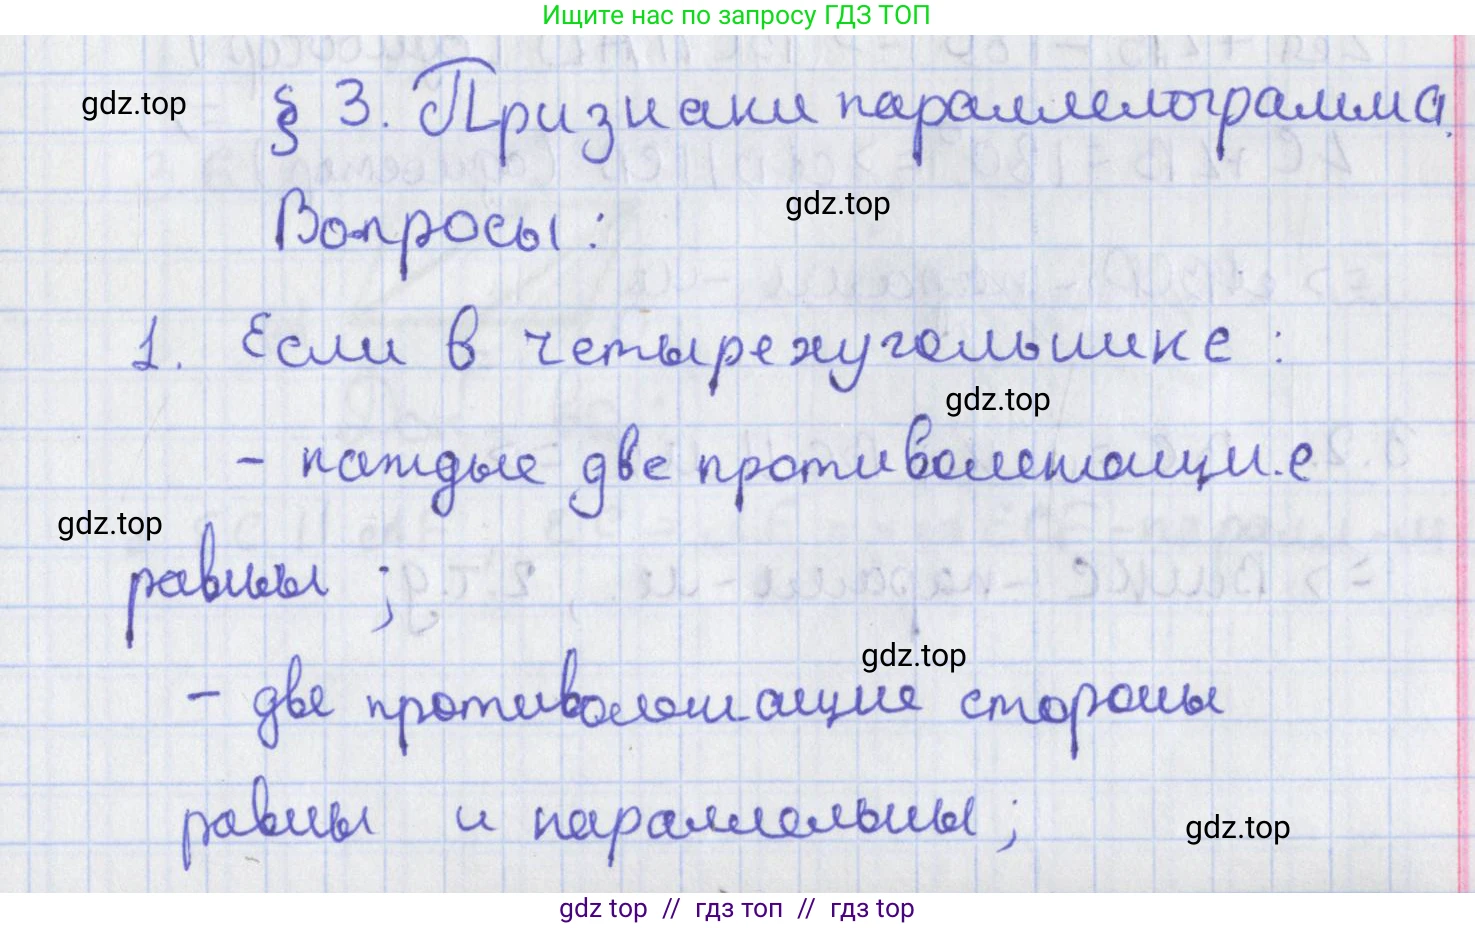 Ищите нас по запросу ГДЗ ТОП
gdz.top
§ 3. Признаки параллелограмма.
gdz.top
Вопросы:
1. Если в четырехугольнике:
gdz.top
- каждые две противолежащие
gdz.top
равны;
gdz.top
- две противолежащие стороны
равны и параллельны;
gdz.top
gdz top // гдз топ // гдз top